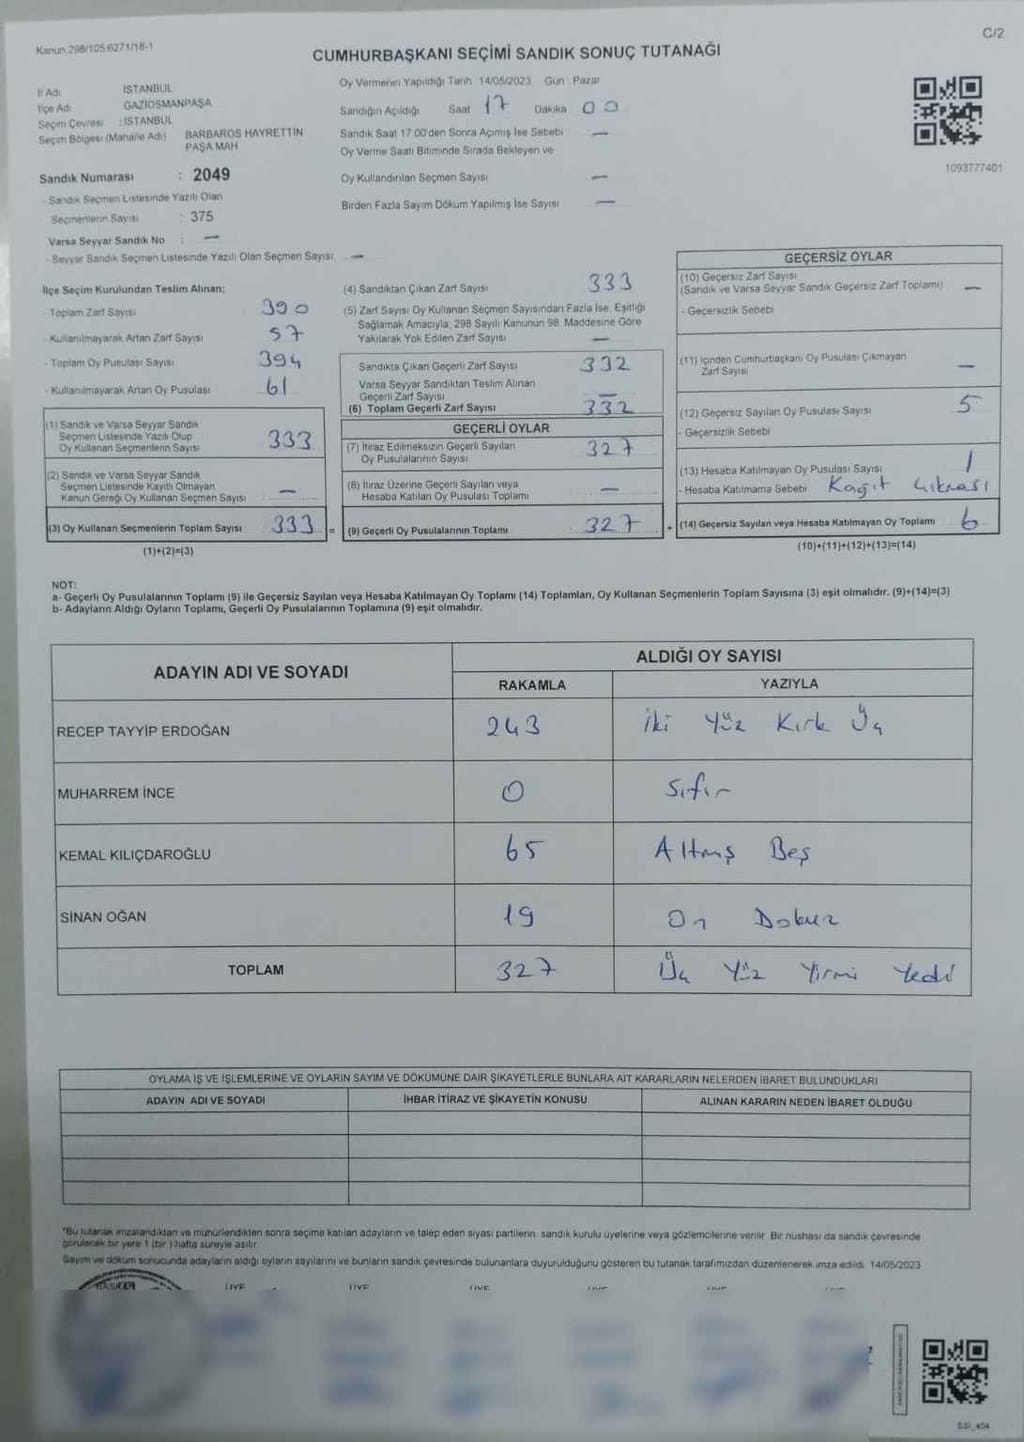 Kanun 298/105 6271/18-1
C/2
CUMHURBAŞKANI SEÇİMİ SANDIK SONUÇ TUTANAĞI
İl Adı İSTANBUL
İlçe Adı GAZİOSMANPAŞA
Seçim Çevresi : İSTANBUL
Seçim Bölgesi (Mahalle Adı) BARBAROS HAYRETTİN PAŞA MAH
Sandık Numarası : 2049
- Sandık Seçmen Listesinde Yazılı Olan
Seçmenlerin Sayısı : 375
Varsa Seyyar Sandık No : —
- Seyyar Sandık Seçmen Listesinde Yazılı Olan Seçmen Sayısı: —
Oy Vermenin Yapıldığı Tarih 14/05/2023 Gün Pazar
Sandığın Açıldığı Saat 17 Dakika 00
Sandık Saat 17.00'den Sonra Açılmış İse Sebebi —
Oy Verme Saati Bitiminde Sırada Bekleyen ve
Oy Kullandırılan Seçmen Sayısı —
Birden Fazla Sayım Döküm Yapılmış İse Sayısı —
1093777401
İlçe Seçim Kurulundan Teslim Alınan:
- Toplam Zarf Sayısı 390
- Kullanılmayarak Artan Zarf Sayısı 57
- Toplam Oy Pusulası Sayısı 394
- Kullanılmayarak Artan Oy Pusulası 61
(1) Sandık ve Varsa Seyyar Sandık
Seçmen Listesinde Yazılı Olup
Oy Kullanan Seçmenlerin Sayısı 333
(2) Sandık ve Varsa Seyyar Sandık
Seçmen Listesinde Kayıtlı Olmayan
Kanun Gereği Oy Kullanan Seçmen Sayısı —
(3) Oy Kullanan Seçmenlerin Toplam Sayısı 333 =
(1)+(2)=(3)
(4) Sandıktan Çıkan Zarf Sayısı 333
(5) Zarf Sayısı Oy Kullanan Seçmen Sayısından Fazla İse, Eşitliği
Sağlamak Amacıyla, 298 Sayılı Kanunun 98. Maddesine Göre
Yakılarak Yok Edilen Zarf Sayısı —
Sandıkta Çıkan Geçerli Zarf Sayısı 332
Varsa Seyyar Sandıktan Teslim Alınan
Geçerli Zarf Sayısı —
(6) Toplam Geçerli Zarf Sayısı 332
GEÇERLİ OYLAR
(7) İtiraz Edilmeksizin Geçerli Sayılan
Oy Pusulalarının Sayısı 327
(8) İtiraz Üzerine Geçerli Sayılan veya
Hesaba Katılan Oy Pusulası Toplamı —
(9) Geçerli Oy Pusulalarının Toplamı 327 +
GEÇERSİZ OYLAR
(10) Geçersiz Zarf Sayısı
(Sandık ve Varsa Seyyar Sandık Geçersiz Zarf Toplamı) —
- Geçersizlik Sebebi
(11) İçinden Cumhurbaşkanı Oy Pusulası Çıkmayan
Zarf Sayısı —
(12) Geçersiz Sayılan Oy Pusulası Sayısı 5
- Geçersizlik Sebebi
(13) Hesaba Katılmayan Oy Pusulası Sayısı 1
- Hesaba Katılmama Sebebi Kağıt çıkması
(14) Geçersiz Sayılan veya Hesaba Katılmayan Oy Toplamı 6
(10)+(11)+(12)+(13)=(14)
NOT:
a- Geçerli Oy Pusulalarının Toplamı (9) ile Geçersiz Sayılan veya Hesaba Katılmayan Oy Toplamı (14) Toplamları, Oy Kullanan Seçmenlerin Toplam Sayısına (3) eşit olmalıdır. (9)+(14)=(3)
b- Adayların Aldığı Oyların Toplamı, Geçerli Oy Pusulalarının Toplamına (9) eşit olmalıdır.
ADAYIN ADI VE SOYADI ALDIĞI OY SAYISI
RAKAMLA YAZIYLA
RECEP TAYYİP ERDOĞAN 243 İki Yüz Kırk Üç
MUHARREM İNCE 0 Sıfır
KEMAL KILIÇDAROĞLU 65 Altmış Beş
SİNAN OĞAN 19 On Dokuz
TOPLAM 327 Üç Yüz Yirmi Yedi
OYLAMA İŞ VE İŞLEMLERİNE VE OYLARIN SAYIM VE DÖKÜMÜNE DAİR ŞİKAYETLERLE BUNLARA AİT KARARLARIN NELERDEN İBARET BULUNDUKLARI
ADAYIN ADI VE SOYADI İHBAR İTİRAZ VE ŞİKAYETİN KONUSU ALINAN KARARIN NEDEN İBARET OLDUĞU
"Bu tutanak imzalandıktan ve mühürlendikten sonra seçime katılan adayların ve talep eden siyasi partilerin sandık kurulu üyelerine veya gözlemcilerine verilir. Bir nüshası da sandık çevresinde
görülecek bir yere 1 (bir) hafta süreyle asılır.
Sayım ve döküm sonucunda adayların aldığı oyların sayılarını ve bunların sandık çevresinde bulunanlara duyurulduğunu gösteren bu tutanak tarafımızdan düzenlenerek imza edildi. 14/05/2023
BAŞKAN ÜYE ÜYE ÜYE ÜYE ÜYE ÜYE